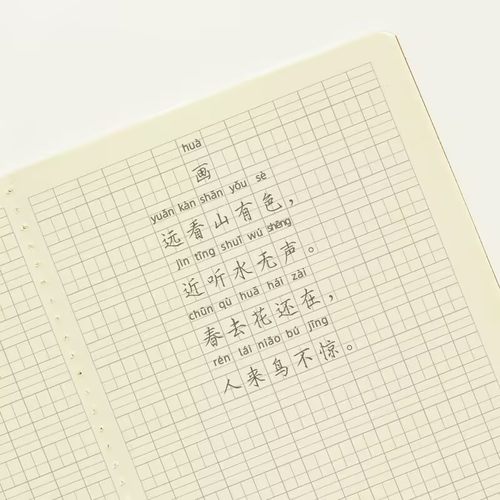 huà
画
yuǎn kàn shān yǒu sè
远看山有色，
jìn tīng shuǐ wú shēng
近听水无声。
chūn qù huā hái zài
春去花还在，
rén lái niǎo bù jīng
人来鸟不惊。